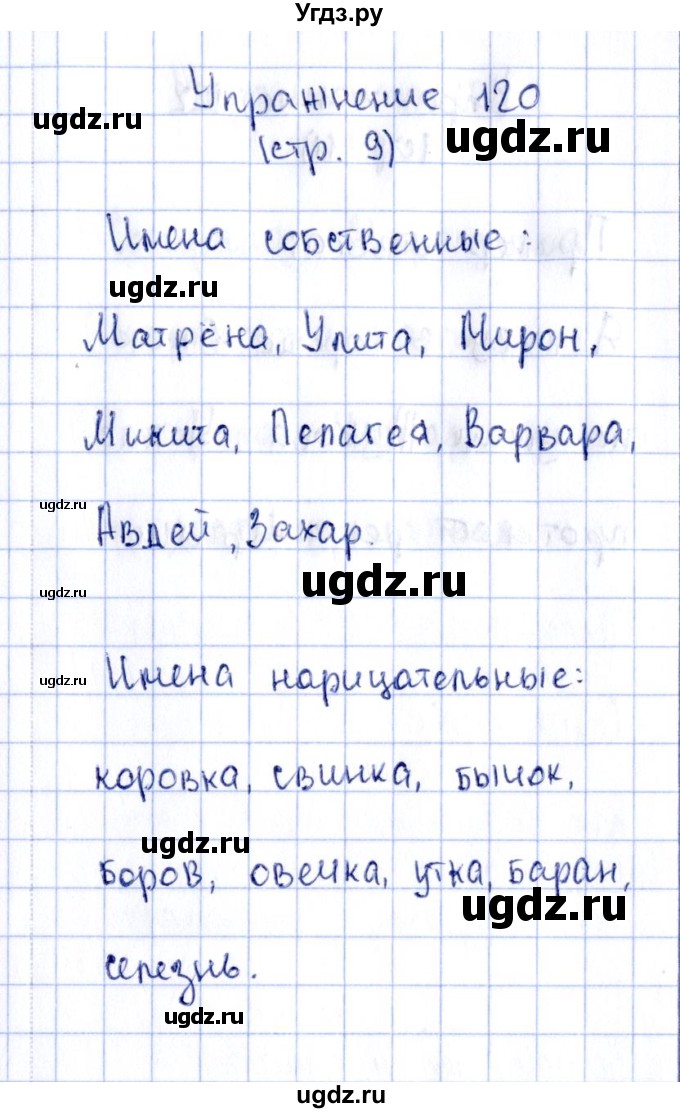 Угдз.ру
Упражнение 120
ugdz.ru
(стр. 9)
ugdz.ru
Имена собственные:
ugdz.ru
Матрёна, Улита, Мирон,
Микита, Пелагея, Варвара,
ugdz.ru
Авдей, Захар.
ugdz.ru
ugdz.ru
Имена нарицательные:
ugdz.ru
коровка, свинка, бычок,
ugdz.ru
боров, овечка, утка, баран,
ugdz.ru
селезнь.
ugdz.ru
ugdz.ru